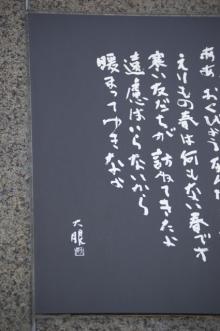 ああ おくびょうなん
えりもの春は何もない春です
寒い友だちが 訪ねてきたよ
遠慮はいらないから
暖まってゆきなよ
大眼